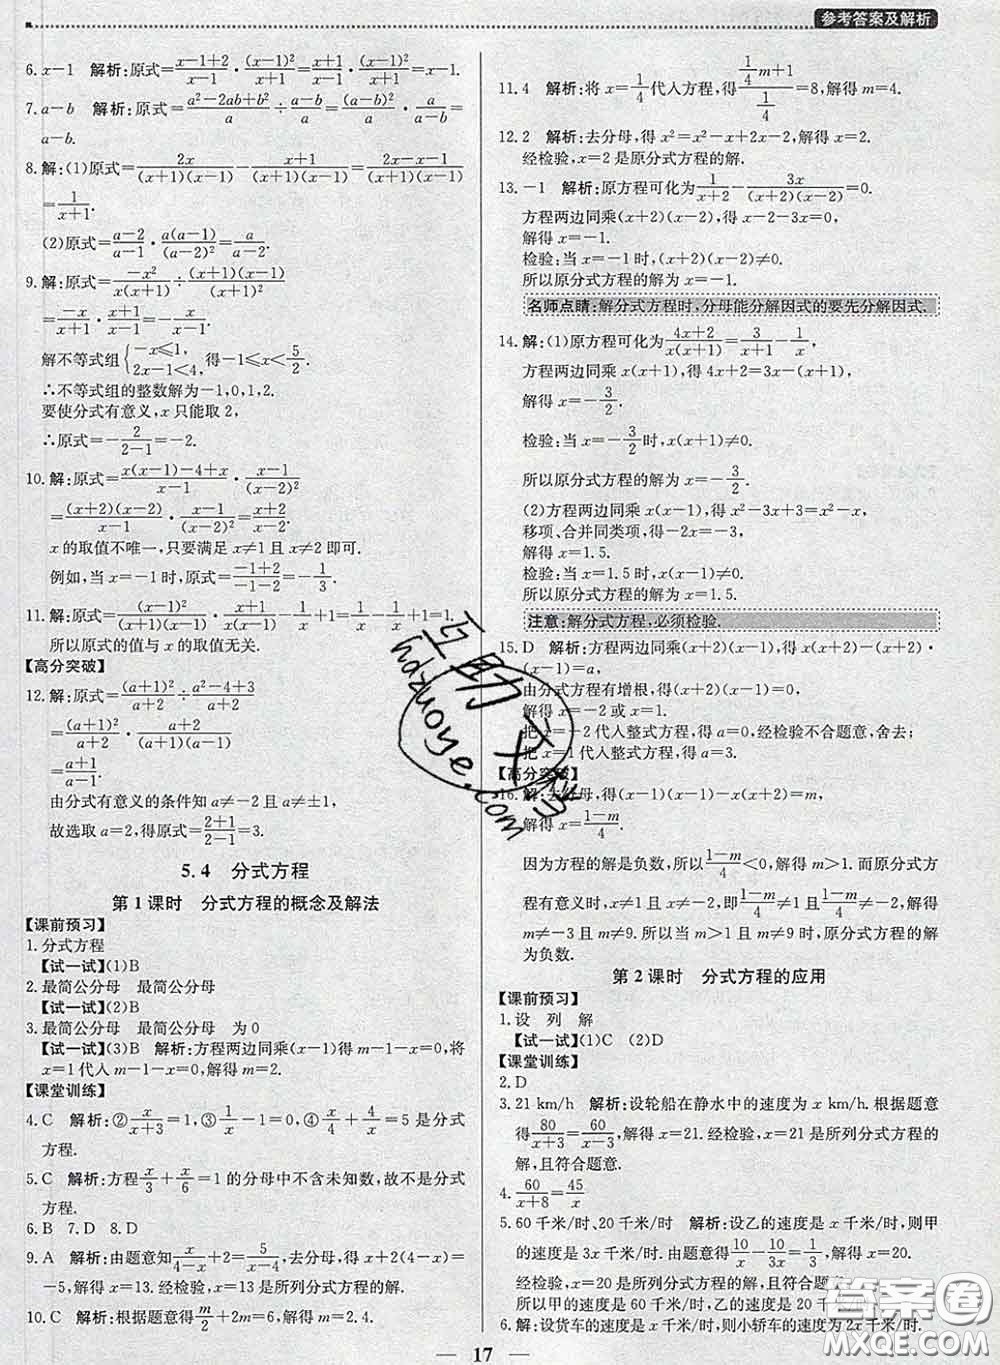 参考答案及解析
6. x−1　解析:原式=(x−1+2)/(x−1)·(x−1)²/(x+1)=(x+1)/(x−1)·(x−1)²/(x+1)=x−1.
7. a−b　解析:原式=(a²−2ab+b²)/a÷(a−b)/a=(a−b)²/a·a/(a−b)=
a−b.
8. 解:(1)原式=2x/((x+1)(x−1))−(x+1)/((x+1)(x−1))=(2x−x−1)/((x+1)(x−1))
=1/(x+1).
(2)原式=(a−2)/(a−1)·a(a−1)/(a−2)²=a/(a−2).
9. 解:原式=−x²/(x(x+1))÷(x+1)(x−1)/(x+1)²
=−x/(x+1)·(x+1)/(x−1)=−x/(x−1).
解不等式组{−x≤1, 2x−1<4, 得−1≤x<5/2.
∴不等式组的整数解为−1,0,1,2.
要使分式有意义,x 只能取 2,
∴原式=−2/(2−1)=−2.
10. 解:原式=(x(x−1)−4+x)/(x−1)·(x−1)/(x−2)²
=(x+2)(x−2)/(x−1)·(x−1)/(x−2)²=(x+2)/(x−2).
x 的取值不唯一,只要满足 x≠1 且 x≠2 即可.
例如,当 x=−1 时,原式=(−1+2)/(−1−2)=−1/3.
11. 解:原式=(x−1)²/((x+1)(x−1))·(x+1)/(x(x−1))−1/x+1=1/x−1/x+1=1.
所以原式的值与 x 的取值无关.
【高分突破】
12. 解:原式=(a+1)²/(a+2)÷(a²−4+3)/(a+2)
=(a+1)²/(a+2)·(a+2)/((a+1)(a−1))
=(a+1)/(a−1).
由分式有意义的条件知 a≠−2 且 a≠±1,
故选取 a=2,得原式=(2+1)/(2−1)=3.
5.4　分式方程
第 1 课时　分式方程的概念及解法
【课前预习】
1. 分式方程
【试一试】(1)B
2. 最简公分母　最简公分母
【试一试】(2)B
3. 最简公分母　最简公分母　为 0
【试一试】(3)B　解析:方程两边同乘(x−1)得 m−1−x=0,将
x=1 代入 m−1−x=0,解得 m=2.
【课堂训练】
4. C　解析:②x/(x+3)=1,③1/x−1=0,④4/x+4/x=5 是分式
方程.
5. C　解析:方程x/3+x/6=1 的分母中不含未知数,故不是分式
方程.
6. B　7. D　8. D
9. A　解析:由题意知x/(4−x)+2=5/(x−4),去分母,得 x+2(4−x)=
−5,解得 x=13.经检验,x=13 是所列分式方程的解.
10. C　解析:根据题意得m/2+2m=2.4.
11. 4　解析:将 x=1/4代入方程,得(1/4m+1)/(1/4)=8,解得 m=4.
12. 2　解析:去分母,得 x²=x²−x+2x−2,解得 x=2.
经检验,x=2 是原分式方程的解.
13. −1　解析:原方程可化为1/(x+2)−3x/((x+2)(x−2))=0.
方程两边同乘(x+2)(x−2),得 x−2−3x=0,
解得 x=−1.
检验:当 x=−1 时,(x+2)(x−2)≠0.
所以原分式方程的解为 x=−1.
名师点睛:解分式方程时,分母能分解因式的要先分解因式.
14. 解:(1)原方程可化为(4x+2)/(x(x+1))=3/(x+1)−1/x,
方程两边同乘 x(x+1),得 4x+2=3x−(x+1),
解得 x=−3/2.
检验:当 x=−3/2时,x(x+1)≠0.
所以原分式方程的解为 x=−3/2.
(2)方程两边同乘 x(x−1),得 x²−3x+3=x²−x,
移项、合并同类项,得−2x=−3,
解得 x=1.5.
检验:当 x=1.5 时,x(x−1)≠0.
所以原分式方程的解为 x=1.5.
注意:解分式方程,必须检验.
15. D　解析:方程两边同乘(x+2)(x−1),得 x(x+2)−(x+2)·
(x−1)=a,
由分式方程有增根,得(x+2)(x−1)=0,
解得 x=−2 或 x=1.
把 x=−2 代入整式方程,得 a=0,经检验不合题意,舍去;
把 x=1 代入整式方程,得 a=3.
【高分突破】
16. 解:去分母,得(x−1)(x−1)−x(x+2)=m,
解得 x=(1−m)/4.
因为方程的解是负数,所以(1−m)/4<0,解得 m>1.而原分式方
程有意义时,x≠1 且 x≠−2,所以(1−m)/4≠1 且(1−m)/4≠−2,解得
m≠−3 且 m≠9.所以当 m>1 且 m≠9 时,原分式方程的解
为负数.
第 2 课时　分式方程的应用
【课前预习】
1. 设　列　解
【试一试】(1)C　(2)D
【课堂训练】
2. D
3. 21 km/h　解析:设轮船在静水中的速度为 x km/h.根据题意
得80/(x+3)=60/(x−3),解得 x=21.经检验,x=21 是所列分式方程的
解,且符合题意.
4. 60/(x+8)=45/x
5. 60 千米/时、20 千米/时　解析:设乙的速度是 x 千米/时,则甲
的速度是 3x 千米/时.由题意得10/x−10/3x=1/3,解得 x=20.
经检验,x=20 是所列分式方程的解,且符合题意.
所以甲的速度是 60 千米/时,乙的速度是 20 千米/时.
6. 解:设货车的速度是 x 千米/时,则小轿车的速度是
17
互助文
hdzuoye.com
答案圈
MXQE.COM